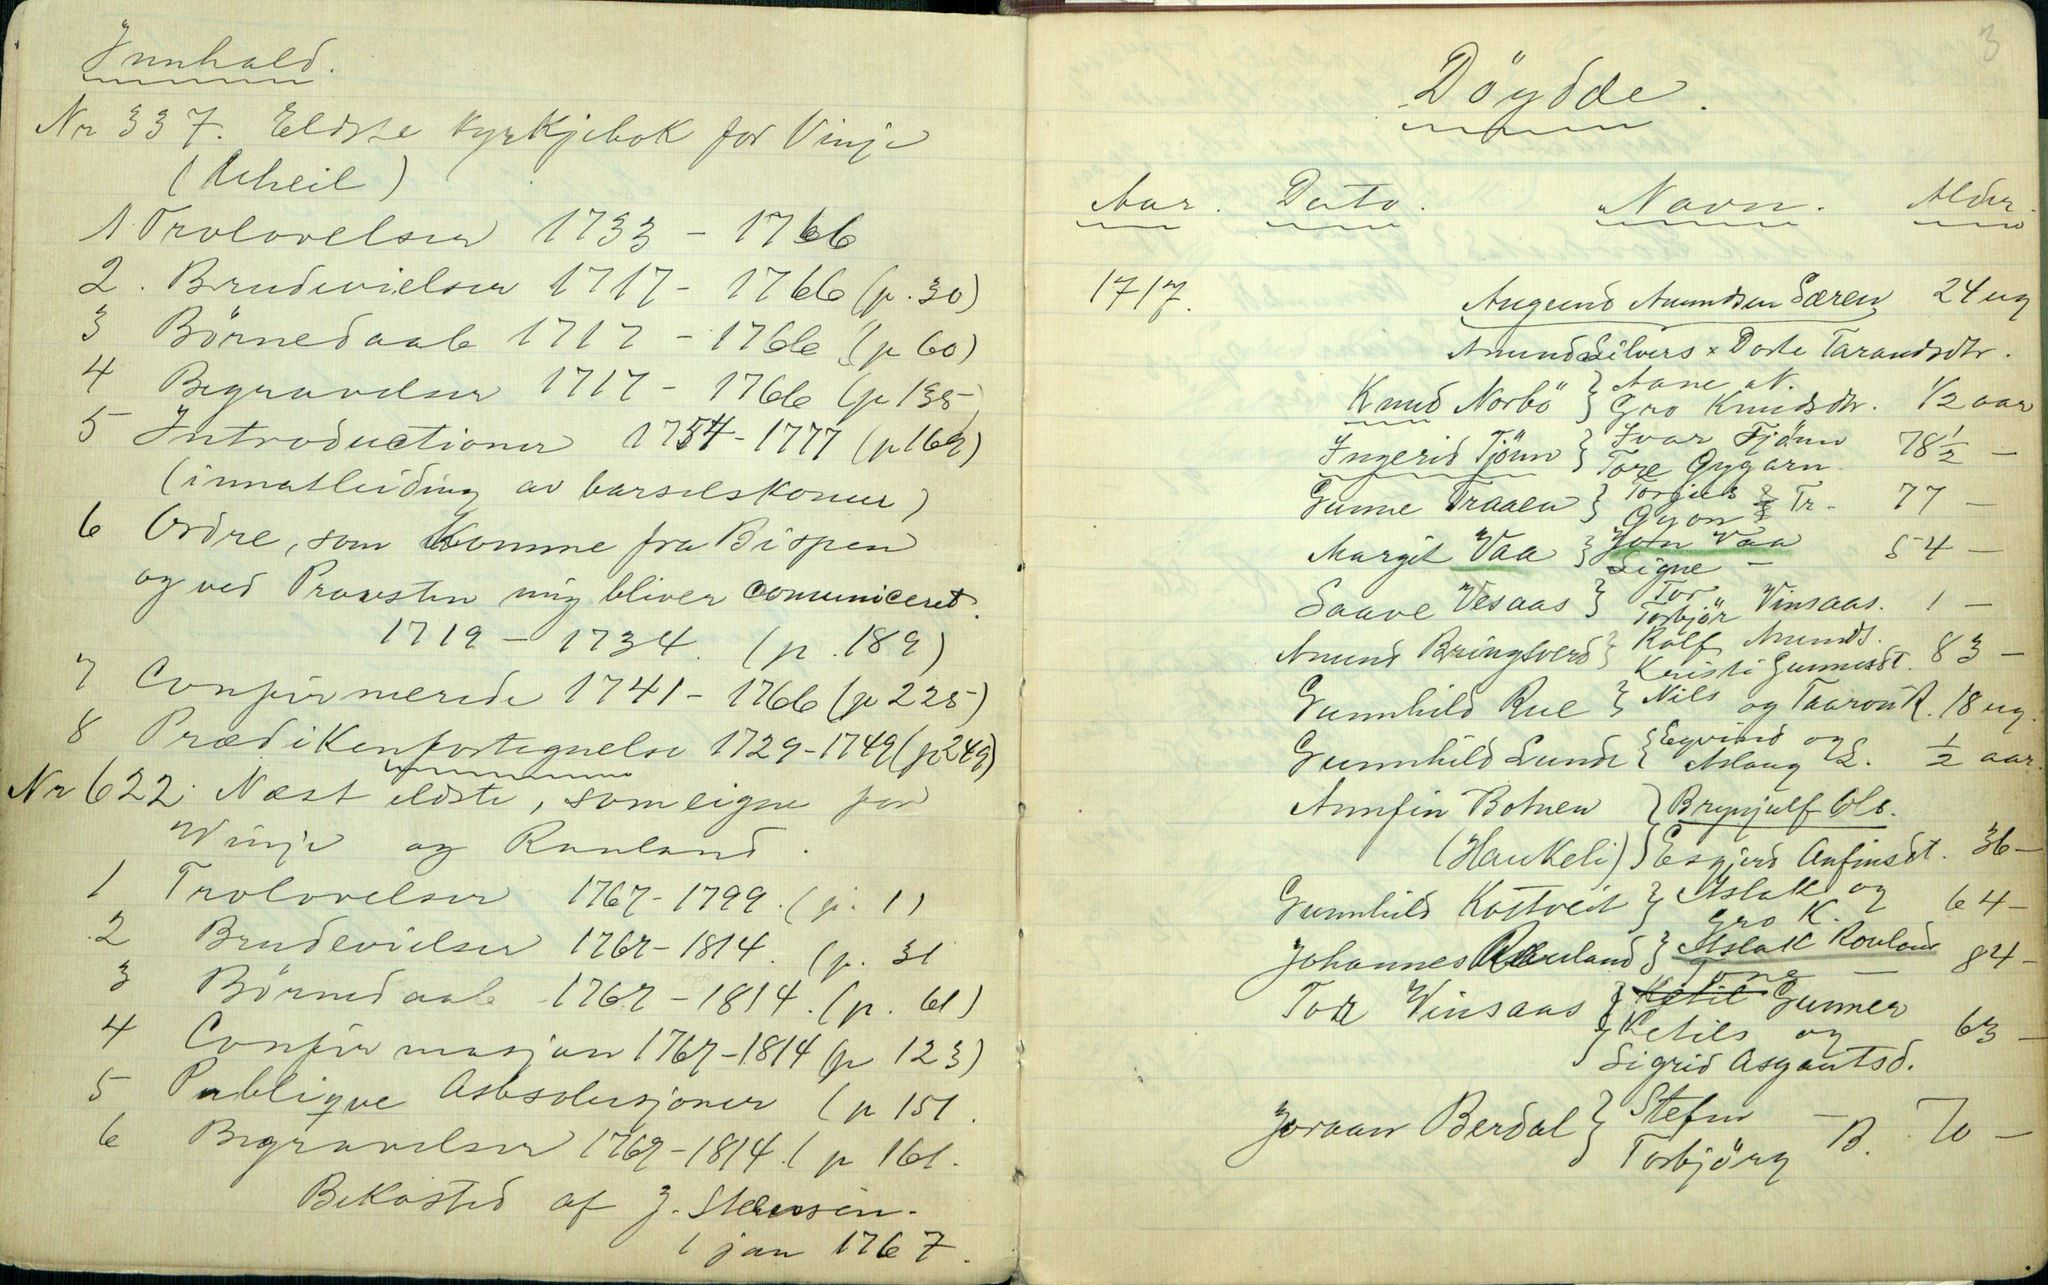 Innhald.
Nr 337. Eldste Kyrkjebok for Vinje
(Uheil)
1 Trolovelser 1733 - 1766
2. Brudevielser 1717 - 1766 (p. 30)
3 Börnedaab 1717 - 1766 (p 60)
4 Begravelser 1717 - 1766 (p 135)
5 Introductioner 1754 - 1777 (p 169)
(innatleiding av barselskonur)
6 Ordre, som komme fra Bispen
og ved Provsten mig bliver comuniceret.
1719 - 1734. (p. 189)
7 Confirmerede 1741 - 1766 (p 225)
8 Prædikenfortegnelse 1729-1749 (p 249)
Nr 622. Næst eldste, som eigne for
Vinje og Rauland.
1 Trolovelser 1767-1799. (p. 1)
2 Brudevielser 1767-1814. (p. 31
3 Börnedaab 1767-1814. (p. 61)
4 Confirmasjon 1767-1814 (p 123)
5 Publique Absolusjoner (p 151.
6 Begravelser 1767-1814. ( p 161.
Bekosted af J. Stensen.
1 jan 1767.
3
Döydde.
Aar. Dato. Navn. Alder.
1717. Augund Amundsen Særen 24 ug
Amund Silvers x Dorte Tarandsdtr.
Knud Norbö } Aane a N.
Gro Knudsdtr. 1/2 aar
Ingerid Tjönn } Ivar Tjönn 78 1/2 -
Tore Gygarn
Gunne Traaen } Torjus Tr. 77 -
Gyon
Margit Vaa } Jon Vaa 54 -
Signe -
Saave Vesaas } Tor
Torbjör Vinsaas. 1 -
Amund Bringsverd } Rolf Amunds.
Kristi Gunnesdt. 83 -
Gunnhild Rue } Nils og Taaron R. 18 ug.
Gunnhild Lunde { Eyvind og
Aslaug L. 1/2 aar.
Annfin Botnen } Brynjulf Ols.
(Haukeli) } Esgjerd Anfinsdt. 36 -
Gunnhild Kostveit } Aslak og
Gro K. 64 -
Johannes Rauland } Aslak Rouland
Tone - 84 -
Tor Vinsaas } Ketil Gunner
} Ketils og 63 -
Sigrid Asgautsd.
Joraan Berdal } Stefen
Torbjörg - B. 70 -